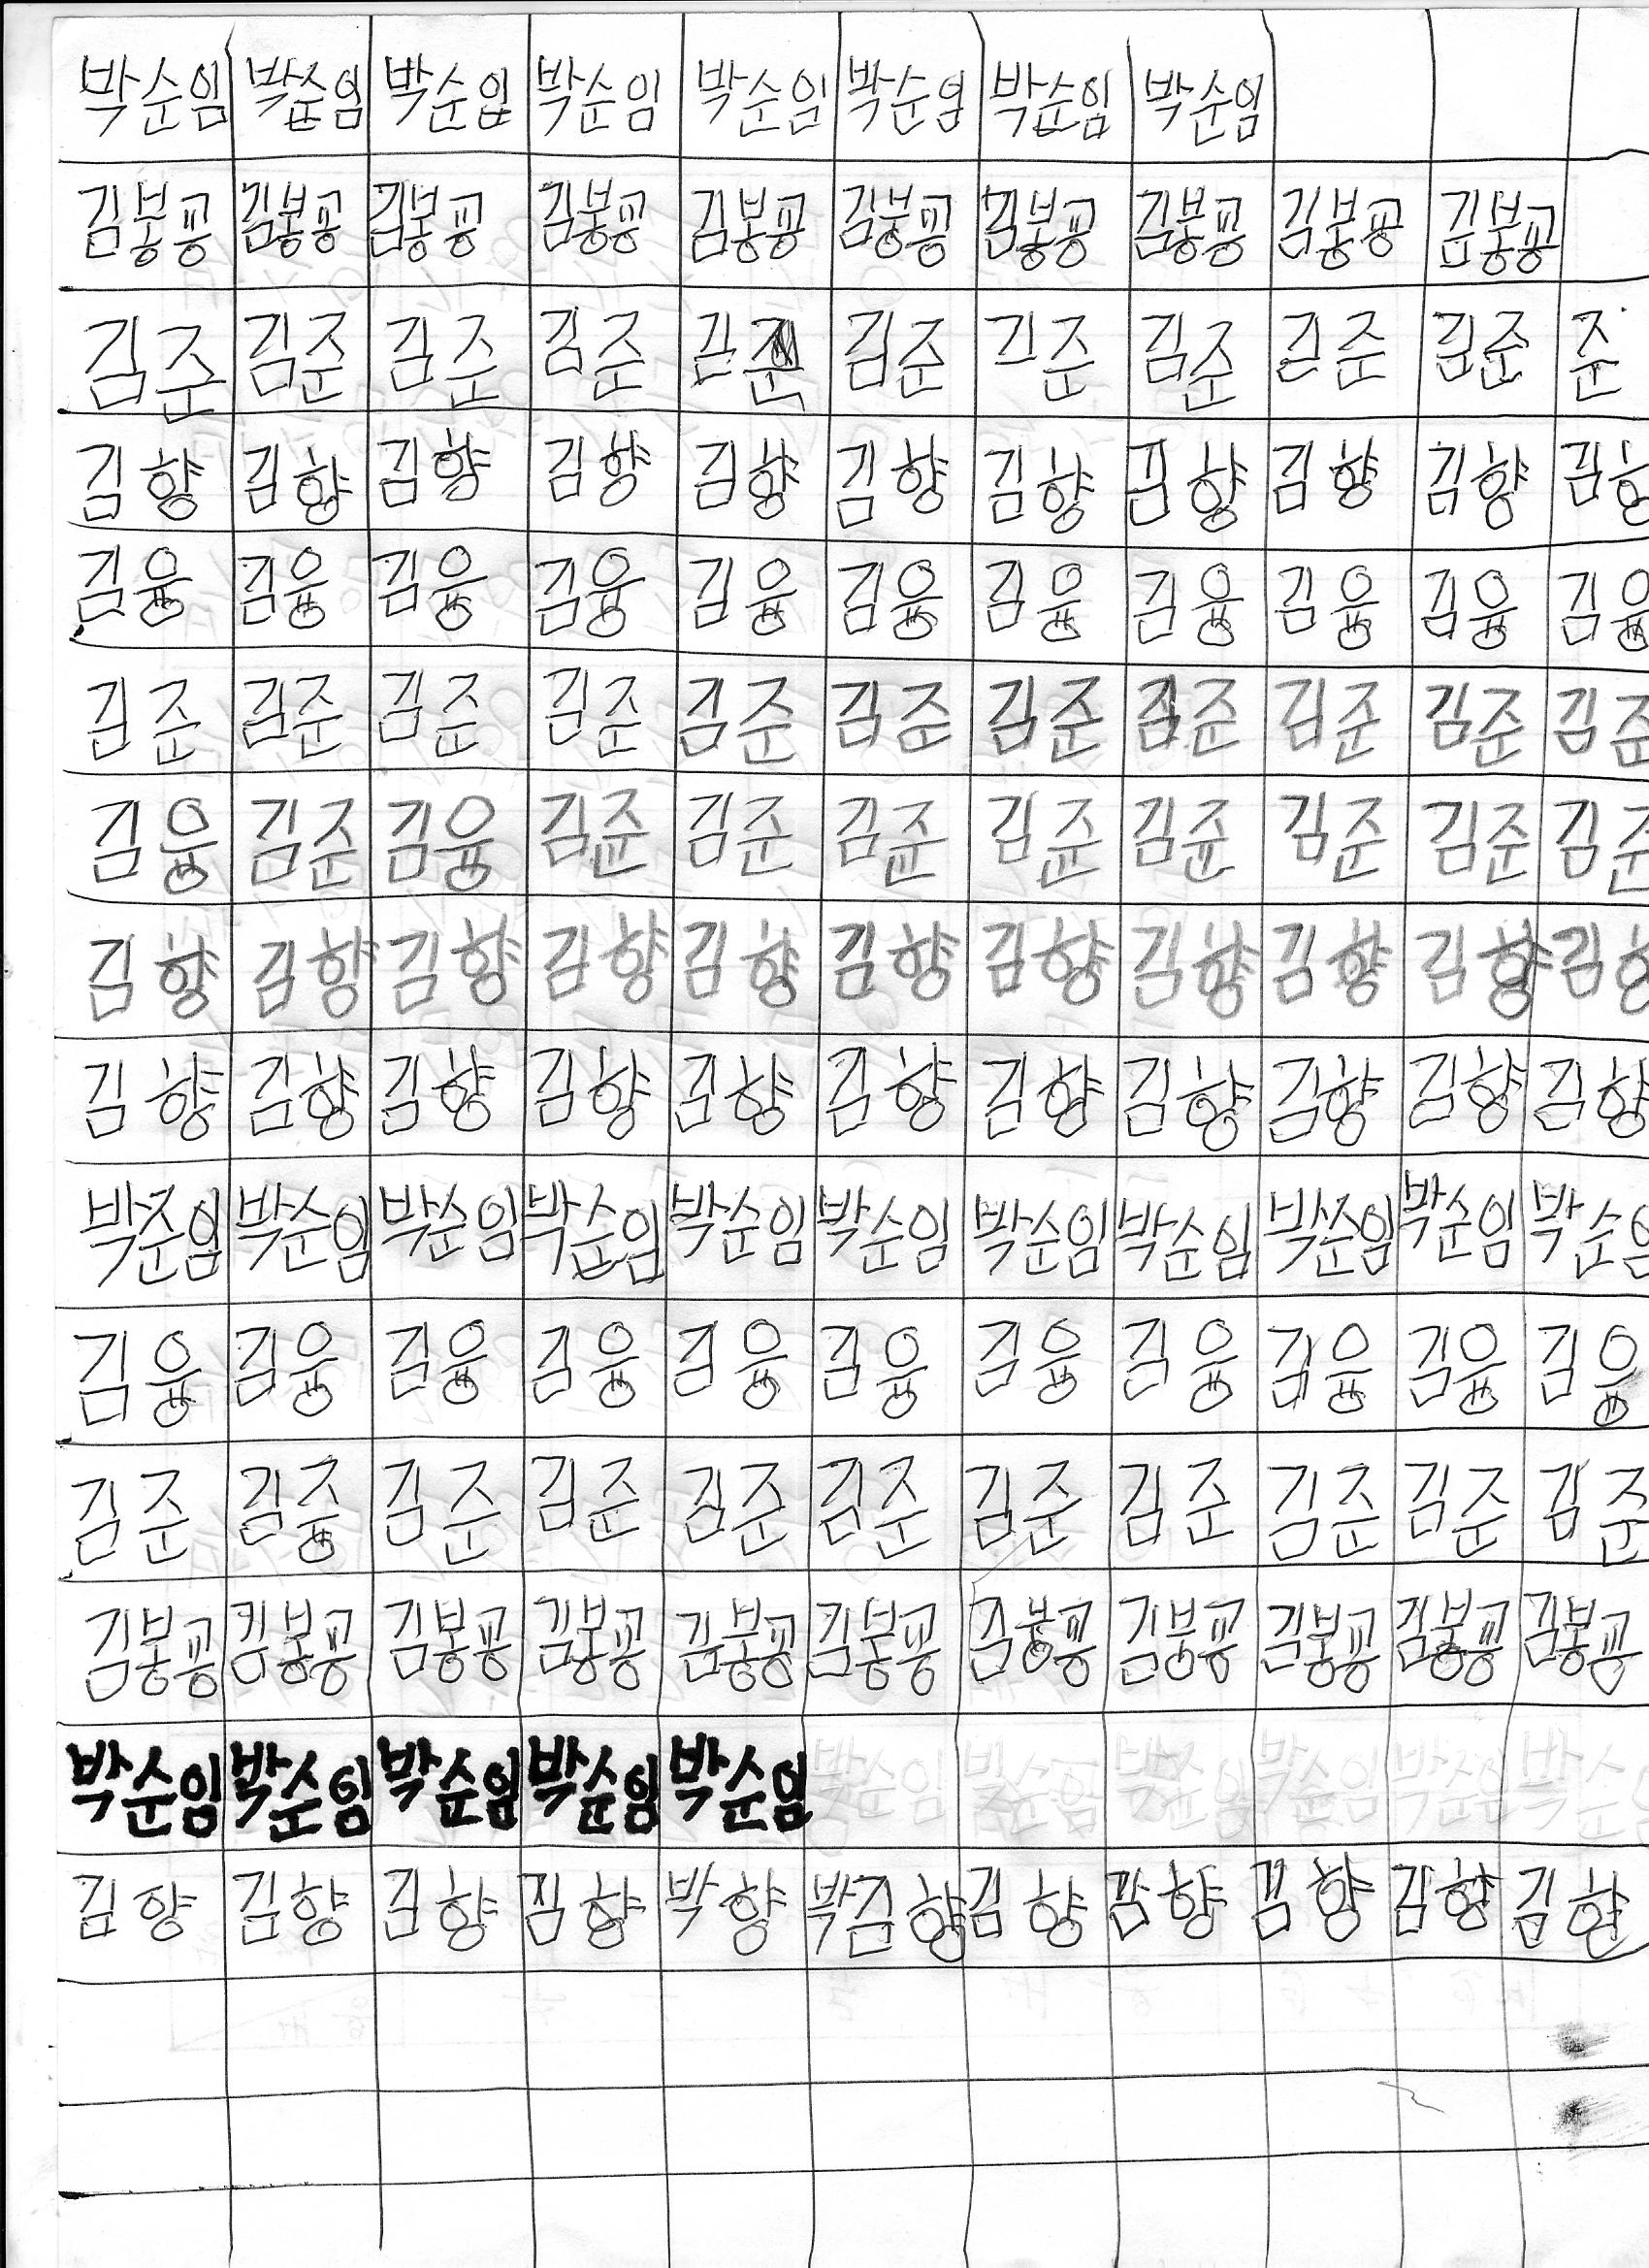 박순임 박순임 박순임 박순임 박순임 박순임 박순임 박순임
김봉공 김봉공 김봉공 김봉공 김봉공 김봉공 김봉공 김봉공 김봉공 김봉공
김준 김준 김준 김준 김준 김준 김준 김준 김준 준
김향 김향 김향 김향 김향 김향 김향 김향 김향 김향
김융 김융 김융 김융 김융 김융 김융 김융 김융 김융 김융
김준 김준 김준 김준 김준 김준 김준 김준 김준 김준 김준
김융 김준 김융 김쥰 김준 김쥰 김쥰 김쥰 김준 김준 김준
김향 김향 김향 김향 김향 김향 김향 김향 김향 김향
김향 김향 김향 김향 김향 김향 김향 김향 김향 김향 김향
박준임 박순임 박순임 박순임 박순임 박순임 박순임 박순임 박준임 박순임 박순임
김융 김융 김융 김융 김융 김융 김융 김융 김융 김융 김융
김준 김중 김준 김준 김준 김준 김준 김준 김준 김준 김준
김봉공 김봉공 김봉공 김봉공 김봉공 김봉공 김봉공 김봉공 김봉공 김봉공 김봉공
박순임 박순임 박순임 박순임 박순임 박순임 박순임 박순임 박순임 박순임 박순임
김향 김향 김향 김향 박향 박김향 김향 김향 김향 김향 김향